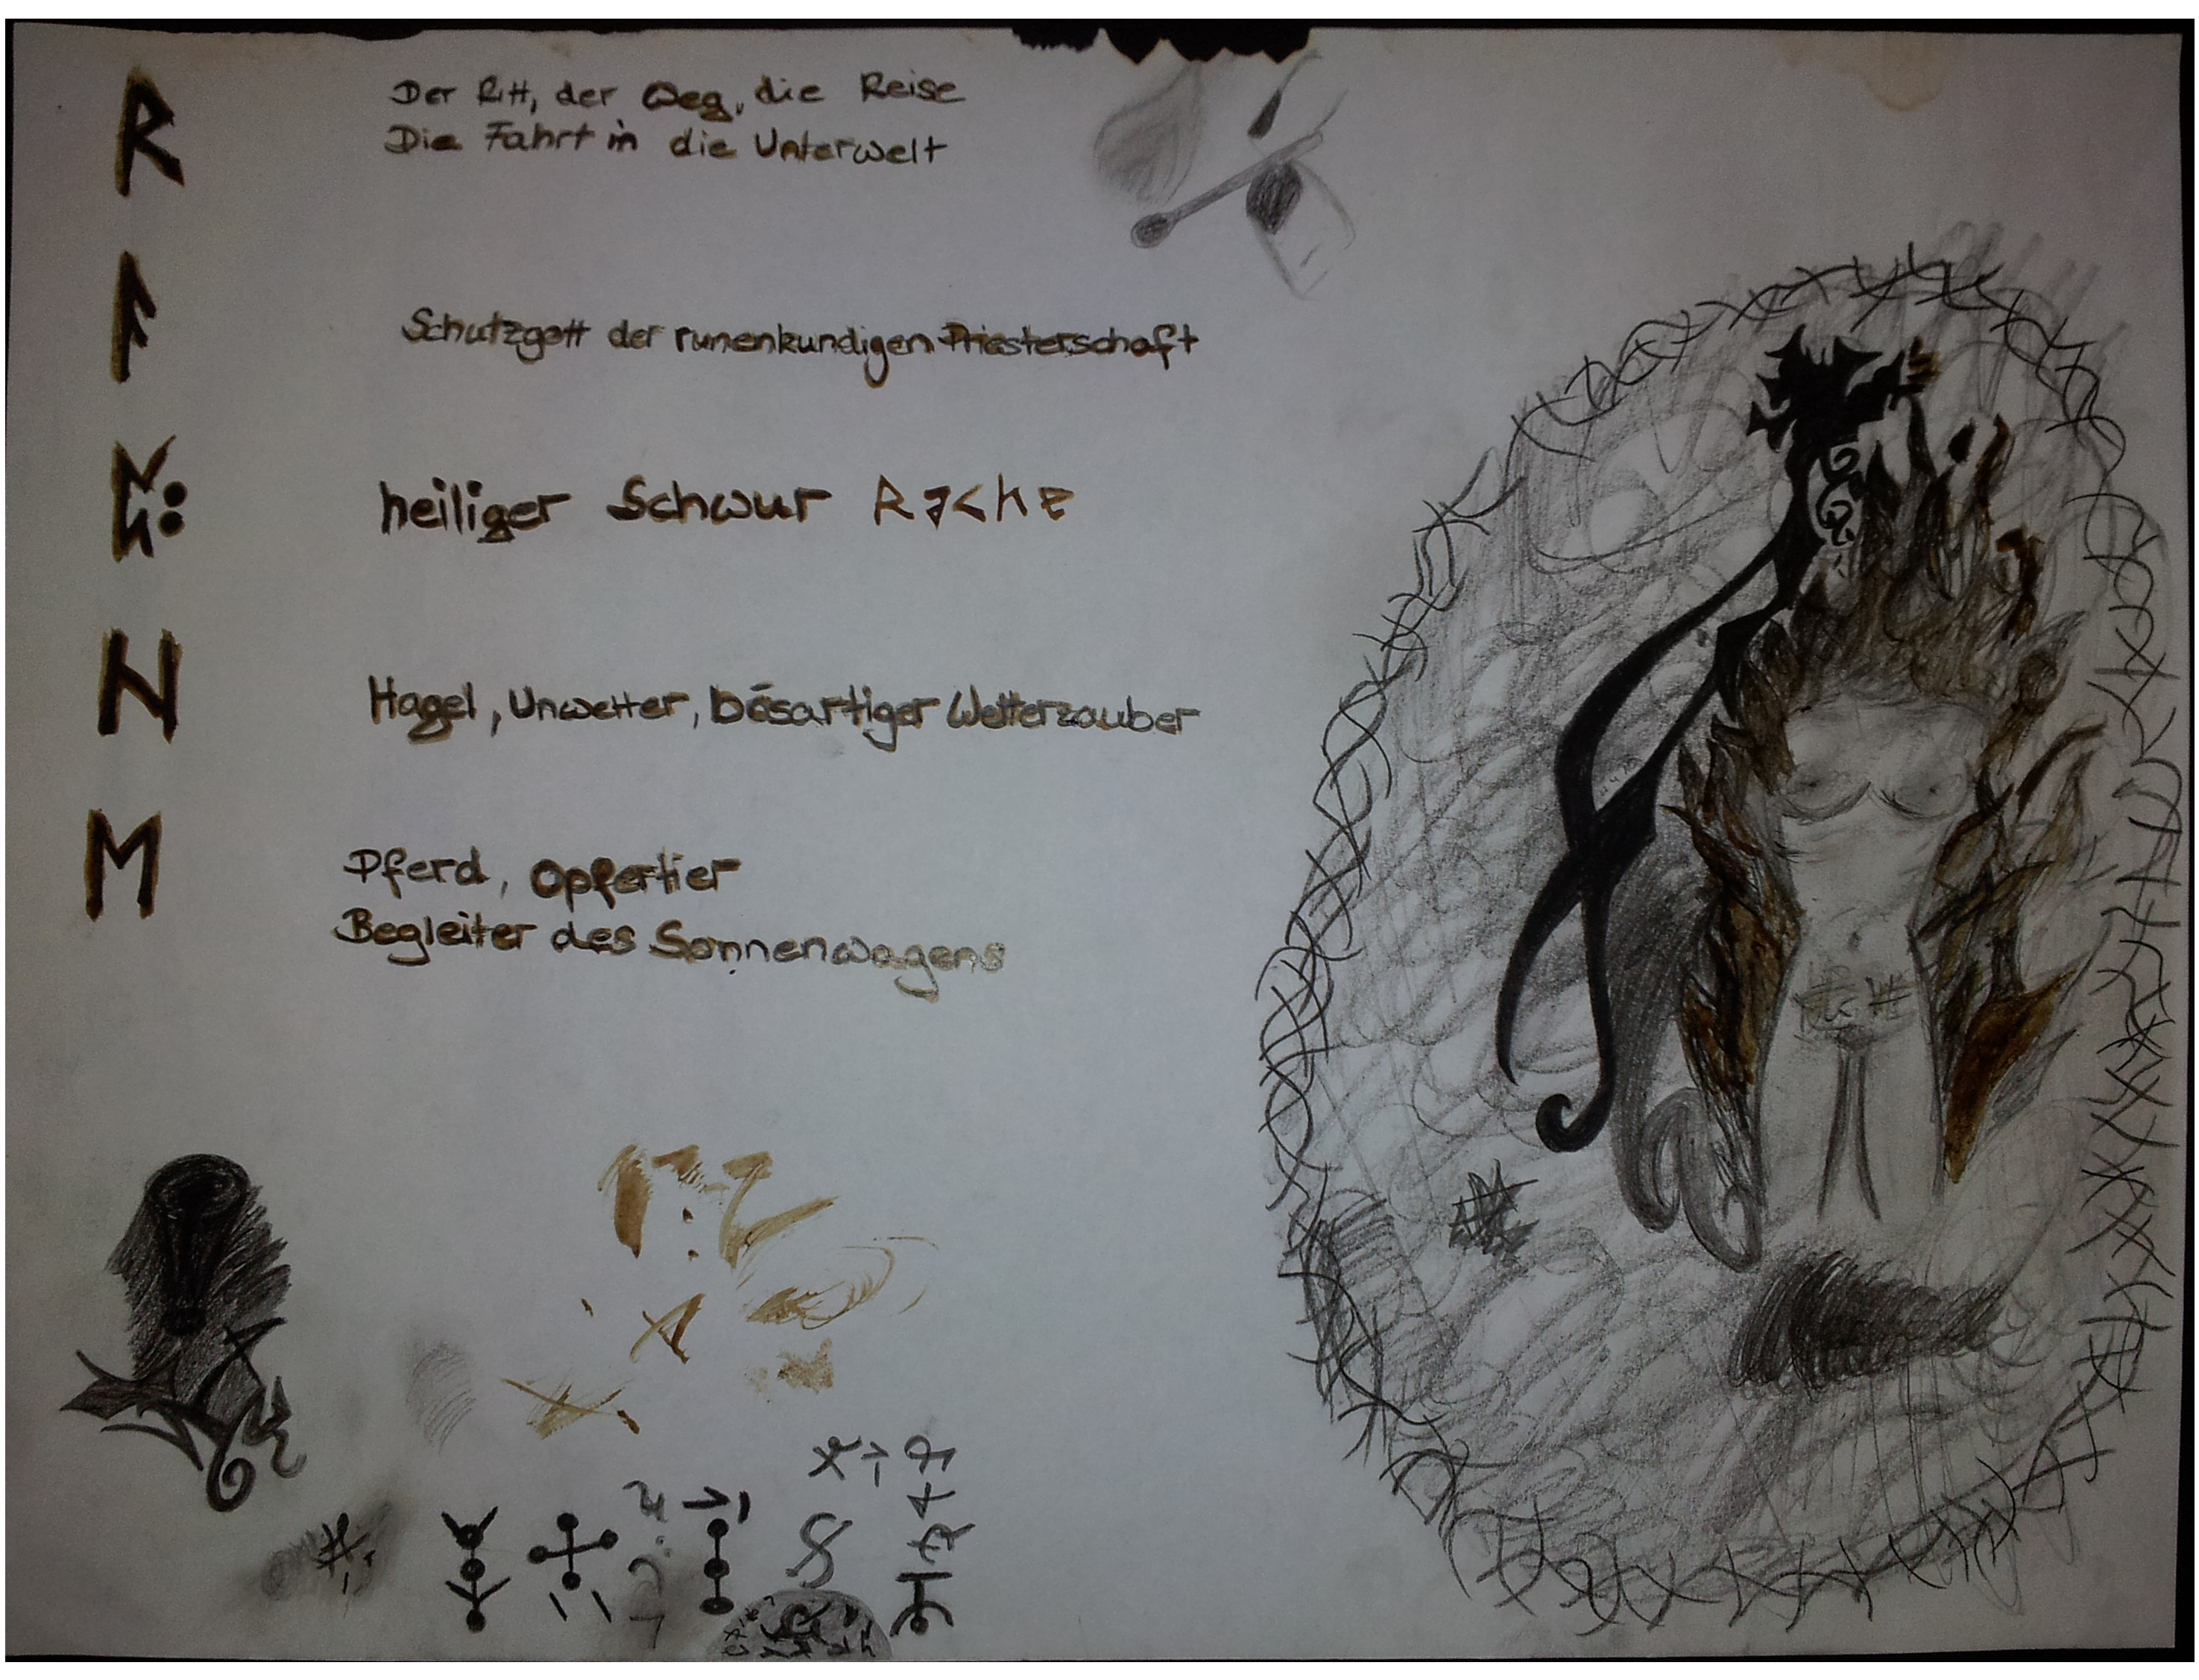 ᚱ
Der Ritt, der Weg, die Reise
Die Fahrt in die Unterwelt
ᚨ
Schutzgott der runenkundigen Priesterschaft
heiliger Schwur ᚱᚨᚲᚺᛖ
ᚺ
Hagel, Unwetter, bösartiger Wetterzauber
ᛖ
Pferd, Opfertier
Begleiter des Sonnenwagens